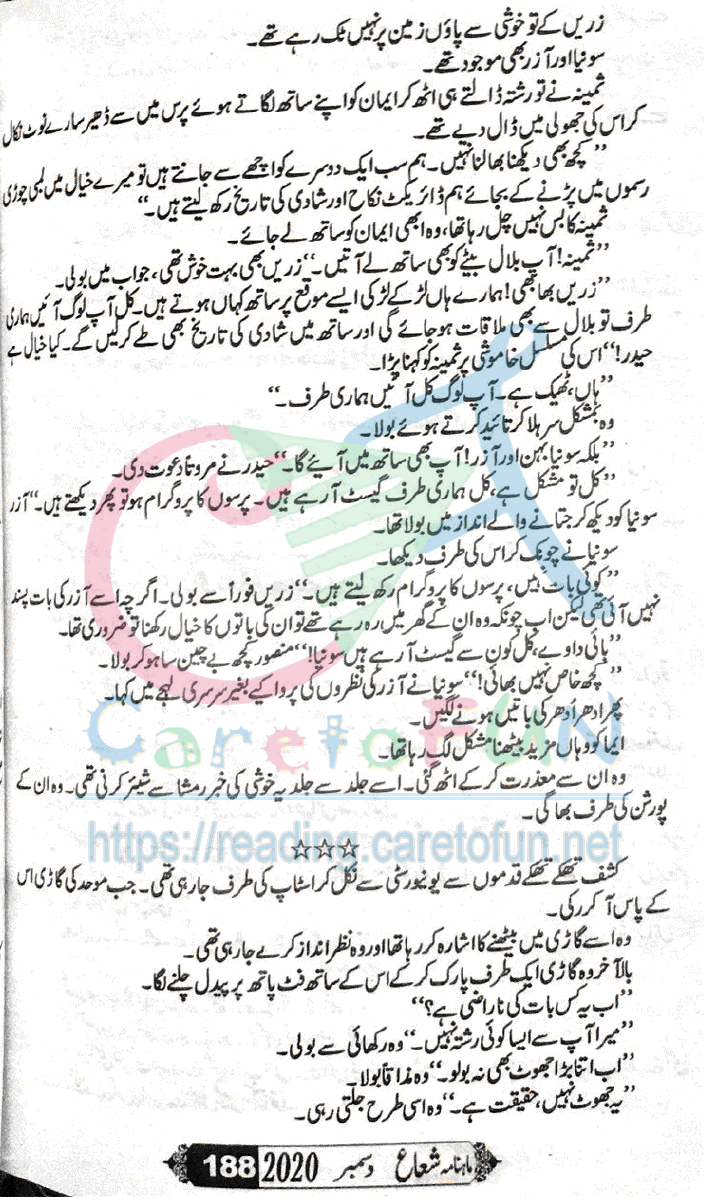 زریں کے تو خوشی سے پاؤں زمین پر نہیں ٹک رہے تھے۔
سونیا اور آزر بھی موجود تھے۔
ثمینہ نے تو رشتہ ڈالتے ہی اٹھ کر ایمان کو اپنے ساتھ لگاتے ہوئے پرس میں سے ڈھیر سارے نوٹ نکال
کر اس کی جھولی میں ڈال دیے تھے۔
’’کچھ بھی دیکھنا بھالنا نہیں۔ ہم سب ایک دوسرے کو اچھے سے جانتے ہیں تو میرے خیال میں لمبی چوڑی
رسموں میں پڑنے کے بجائے ہم ڈائریکٹ نکاح اور شادی کی تاریخ رکھ لیتے ہیں۔‘‘
ثمینہ کا بس نہیں چل رہا تھا، وہ ابھی ایمان کو ساتھ لے جائے۔
’’ثمینہ! آپ بلال بیٹے کو بھی ساتھ لے آتیں۔‘‘ زریں بھی بہت خوش تھی، جواب میں بولی۔
’’زریں بھابھی! ہمارے ہاں لڑکے لڑکی ایسے موقع پر ساتھ کہاں ہوتے ہیں۔ کل آپ لوگ آئیں ہماری
طرف تو بلال سے بھی ملاقات ہو جائے گی اور ساتھ میں شادی کی تاریخ بھی طے کر لیں گے۔ کیا خیال ہے
حیدر!‘‘ اس کی مسلسل خاموشی پر ثمینہ کو کہنا پڑا۔
’’ہاں، ٹھیک ہے۔ آپ لوگ کل آئیں ہماری طرف۔‘‘
وہ بمشکل سر ہلا کر تائید کرتے ہوئے بولا۔
’’بلکہ سونیا بہن اور آزر! آپ بھی ساتھ میں آیئے گا۔‘‘ حیدر نے مروتاً دعوت دی۔
’’کل تو مشکل ہے، کل ہماری طرف گیسٹ آ رہے ہیں۔ پرسوں کا پروگرام ہو تو پھر دیکھتے ہیں۔‘‘ آزر
سونیا کو دیکھ کر جتانے والے انداز میں بولا تھا۔
سونیا نے چونک کر اس کی طرف دیکھا۔
’’کوئی بات نہیں، پرسوں کا پروگرام رکھ لیتے ہیں۔‘‘ زریں فوراً سے بولی۔ اگرچہ اسے آزر کی بات پسند
نہیں آئی تھی لیکن اب چونکہ وہ ان کے گھر میں رہ رہے تھے تو ان کی باتوں کا خیال رکھنا تو ضروری تھا۔
’’بائی داوے، کل کون سے گیسٹ آ رہے ہیں سونیا!‘‘ منصور کچھ بے چین سا ہو کر بولا۔
’’کچھ خاص نہیں بھائی!‘‘ سونیا نے آزر کی نظروں کی پروا کیے بغیر سرسری لہجے میں کہا۔
پھر ادھر ادھر کی باتیں ہونے لگیں۔
ایما کو وہاں مزید بیٹھنا مشکل لگ رہا تھا۔
وہ ان سے معذرت کر کے اٹھ گئی۔ اسے جلد سے جلد یہ خوشی کی خبر رمشا سے شیئر کرنی تھی۔ وہ ان کے
پورشن کی طرف بھاگی۔
CaretoFUN
https://reading.caretofun.net
☆☆☆
کشف تھکے تھکے قدموں سے یونیورسٹی سے نکل کر اسٹاپ کی طرف جا رہی تھی۔ جب موحد کی گاڑی اس
کے پاس آ کر رکی۔
وہ اسے گاڑی میں بیٹھنے کا اشارہ کر رہا تھا اور وہ نظر انداز کرے جا رہی تھی۔
بالآخر وہ گاڑی ایک طرف پارک کر کے اس کے ساتھ فٹ پاتھ پر پیدل چلنے لگا۔
’’اب یہ کس بات کی ناراضی ہے؟‘‘
’’میرا آپ سے ایسا کوئی رشتہ نہیں۔‘‘ وہ رکھائی سے بولی۔
’’اب اتنا بڑا جھوٹ بھی نہ بولو۔‘‘ وہ مذاقاً بولا۔
’’یہ جھوٹ نہیں، حقیقت ہے۔‘‘ وہ اسی طرح چلتی رہی۔
ماہنامہ شعاع دسمبر 2020 188